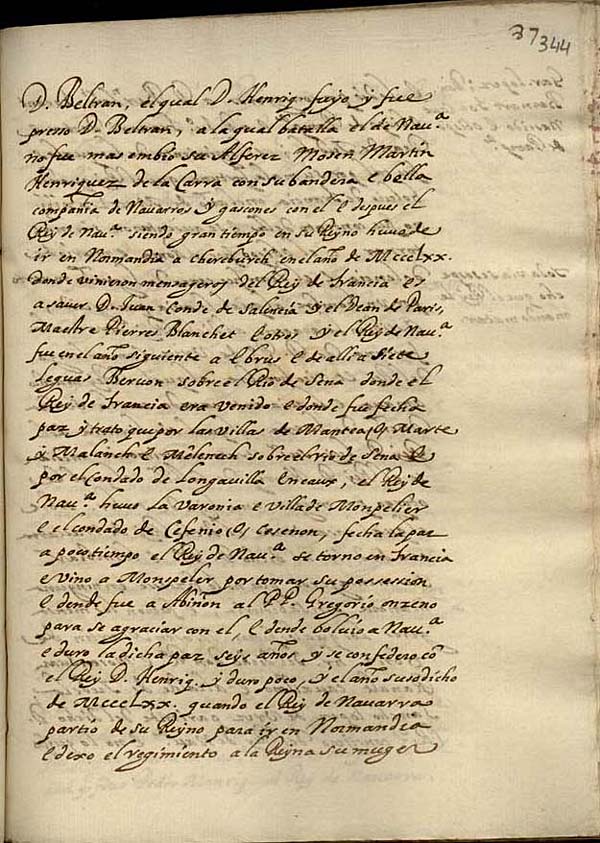 37 344
D. Beltran, el qual D. Henriq. fuyo y fue
presso D. Beltran, a la qual batalla el de Nau.ª
no fue mas embio su Alferez Mosen Martin
Henriquez de la Carra con su bandera e bella
compañia de Nauarros y gascones con el e despues el
Rey de Nau.ª siendo gran tiempo en su Reyno huuo de
ir en Normandia a Chereburch en el año de MCCCLXX.
donde vinieron mensageros del Rey de francia es
a sauer D. Juan Conde de Salencia y el Dean de Paris,
Maestre Pierres Blanchet e otros y el Rey de Nau.ª
fue en el año siguiente a Ebrus e de alli a siete
leguas Beruon sobre el Rio de Sena donde el
Rey de francia era venido e donde fue fecha
paz y trato que por las villas de Mantea, (o) Marte
y Malanch e Melench sobre el rio de Sena e
por el Condado de Longauilla en caux, el Rey de
Nau.ª huuo la Varonia e villa de Monpelier
e el condado de Cesenio (o) Cosenon, fecha la paz
a poco tiempo el Rey de Nau.ª se torno en francia
e vino a Monspeler por tomar su possession
e dende fue a Abiñon al Pp. Gregorio onzeno
para se agraciar con el, e dende boluio a Nau.ª
e duro la dicha paz seys años y se confedero cõ
el Rey D. Henriq. y duro poco, y el año susodicho
de MCCCLXX. quando el Rey de Nauarra
partio de su Reyno para ir en Normandia
e dexo el regimiento a la Reyna su muger